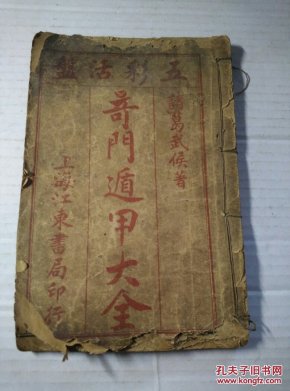 五彩活盤
諸葛武侯著
奇門遁甲大全
上海江東書局印行
孔夫子旧书网